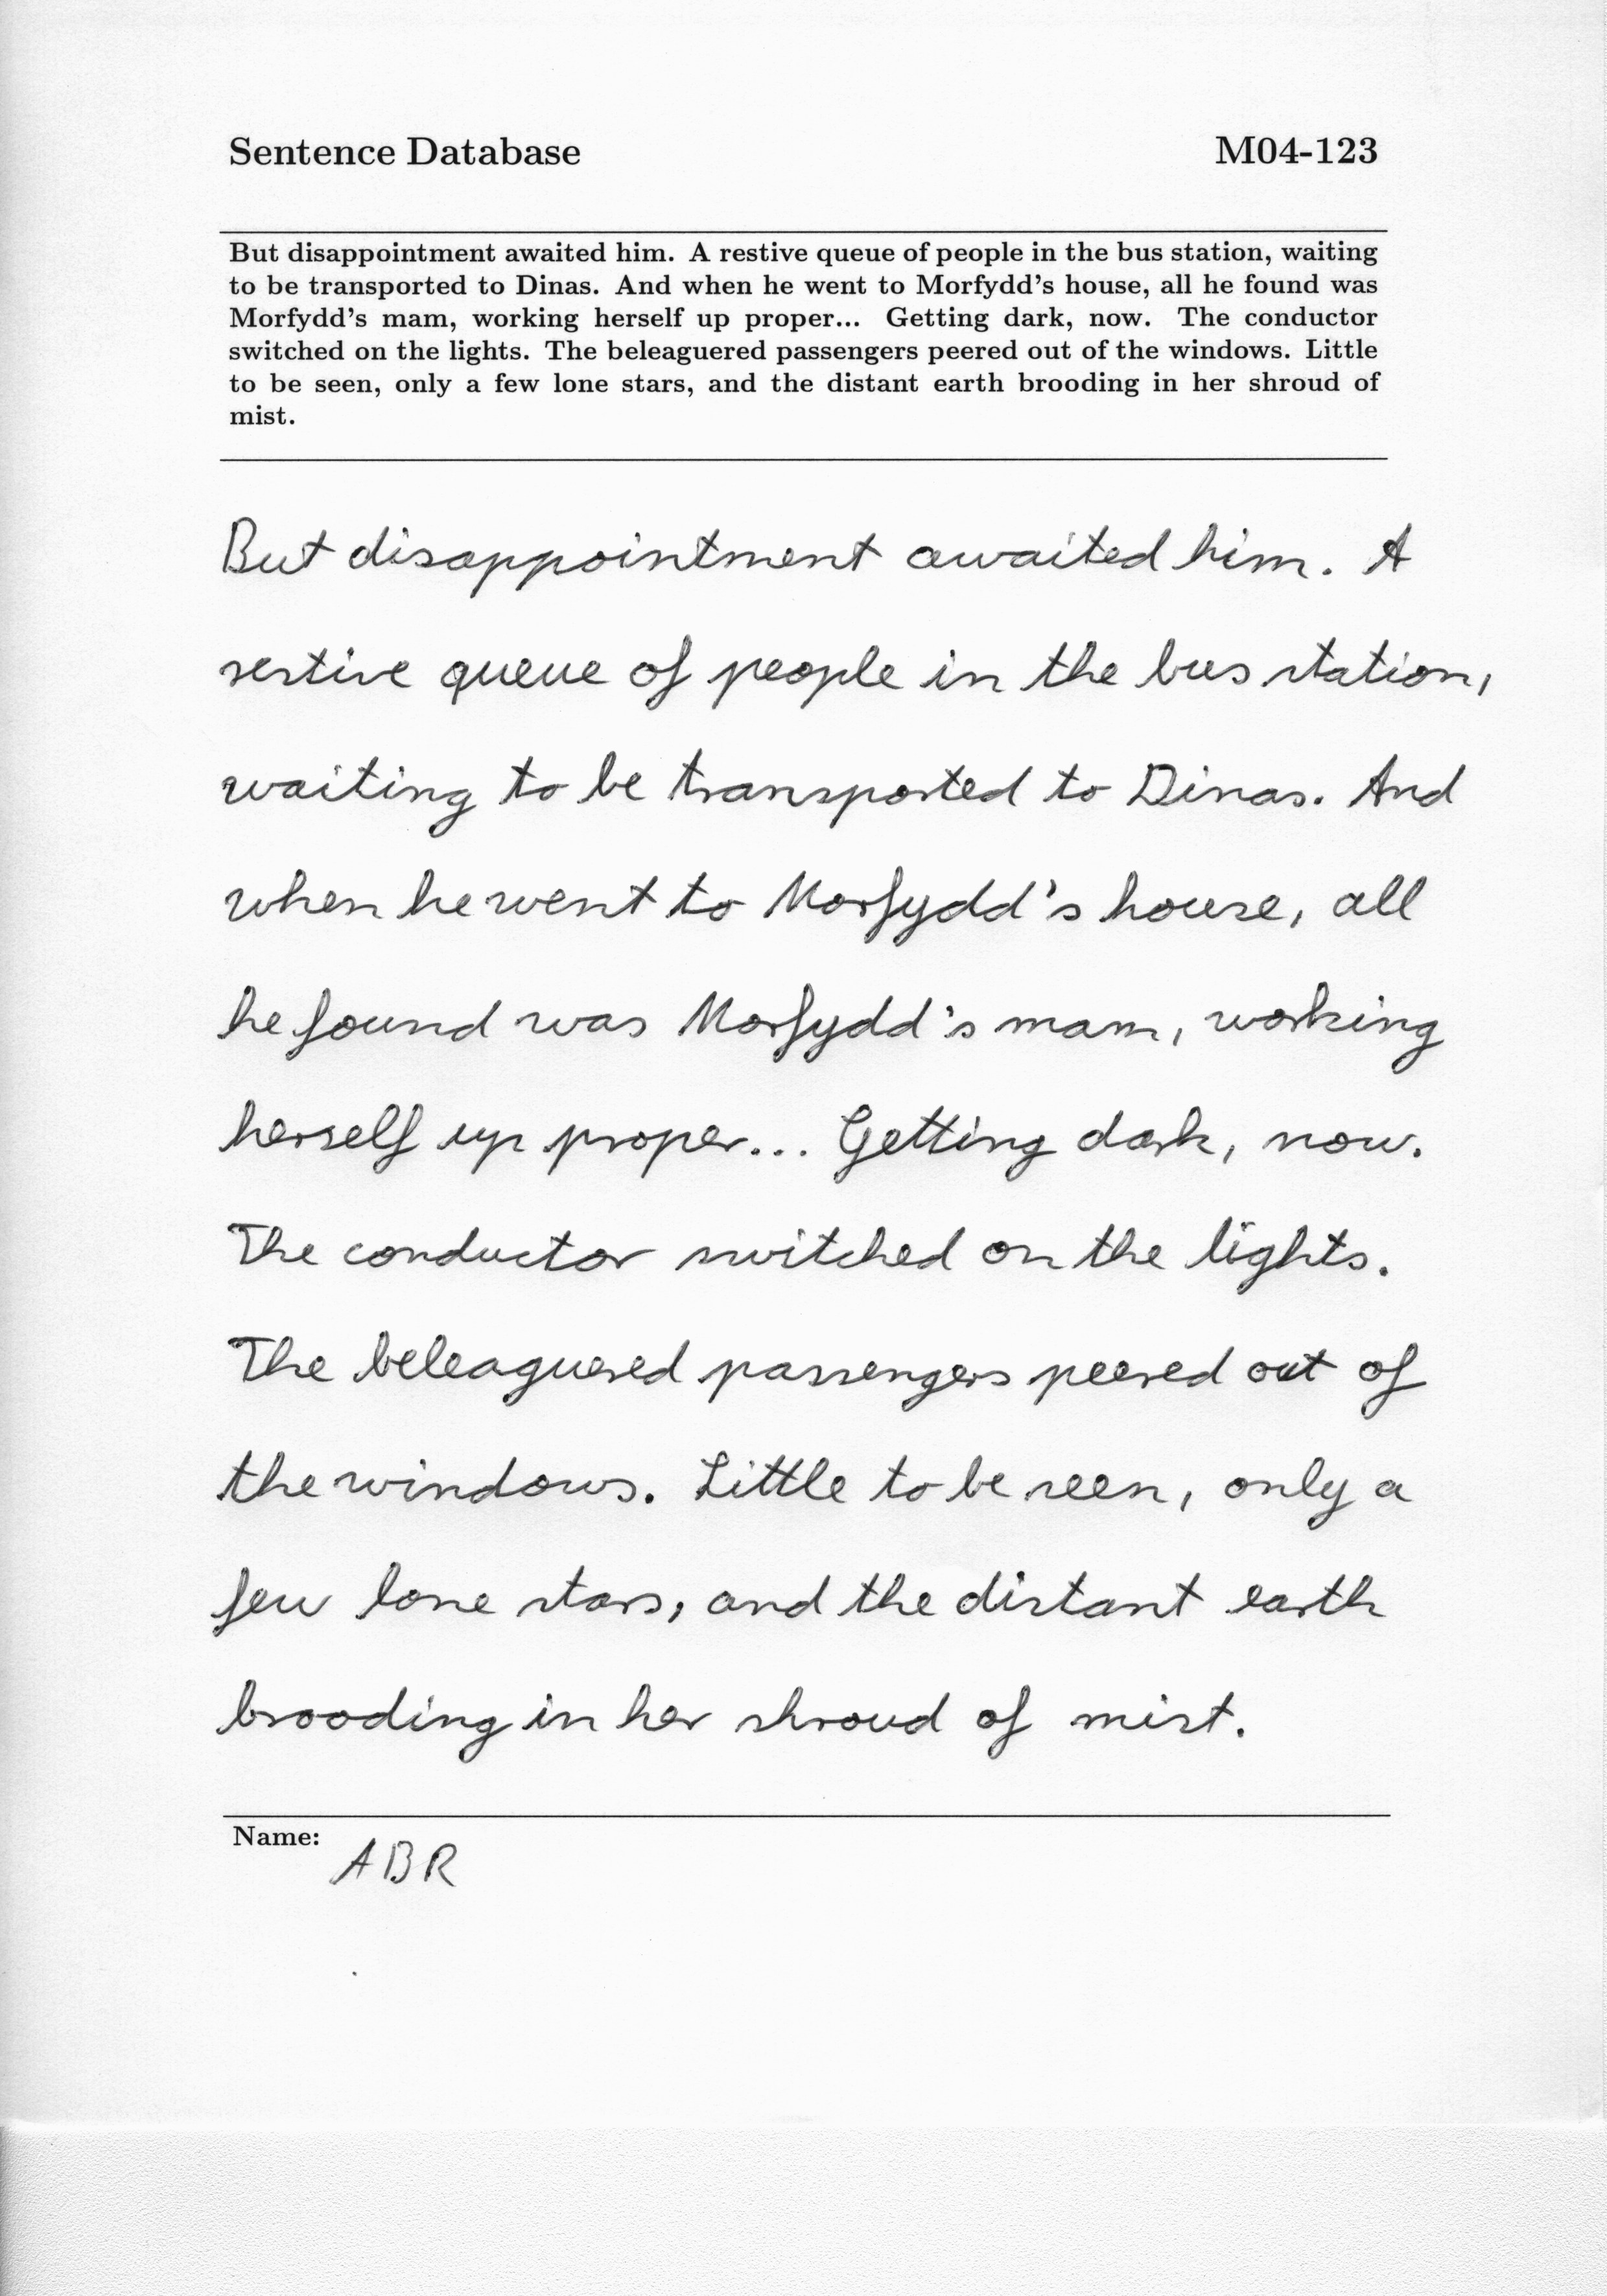 Sentence Database M04-123
But disappointment awaited him. A restive queue of people in the bus station, waiting
to be transported to Dinas. And when he went to Morfydd's house, all he found was
Morfydd's mam, working herself up proper... Getting dark, now. The conductor
switched on the lights. The beleaguered passengers peered out of the windows. Little
to be seen, only a few lone stars, and the distant earth brooding in her shroud of
mist.
But disappointment awaited him. A
restive queue of people in the bus station,
waiting to be transported to Dinas. And
when he went to Morfydd's house, all
he found was Morfydd's mam, working
herself up proper... Getting dark, now.
The conductor switched on the lights.
The beleaguered passengers peered out of
the windows. Little to be seen, only a
few lone stars, and the distant earth
brooding in her shroud of mist.
Name: ABR